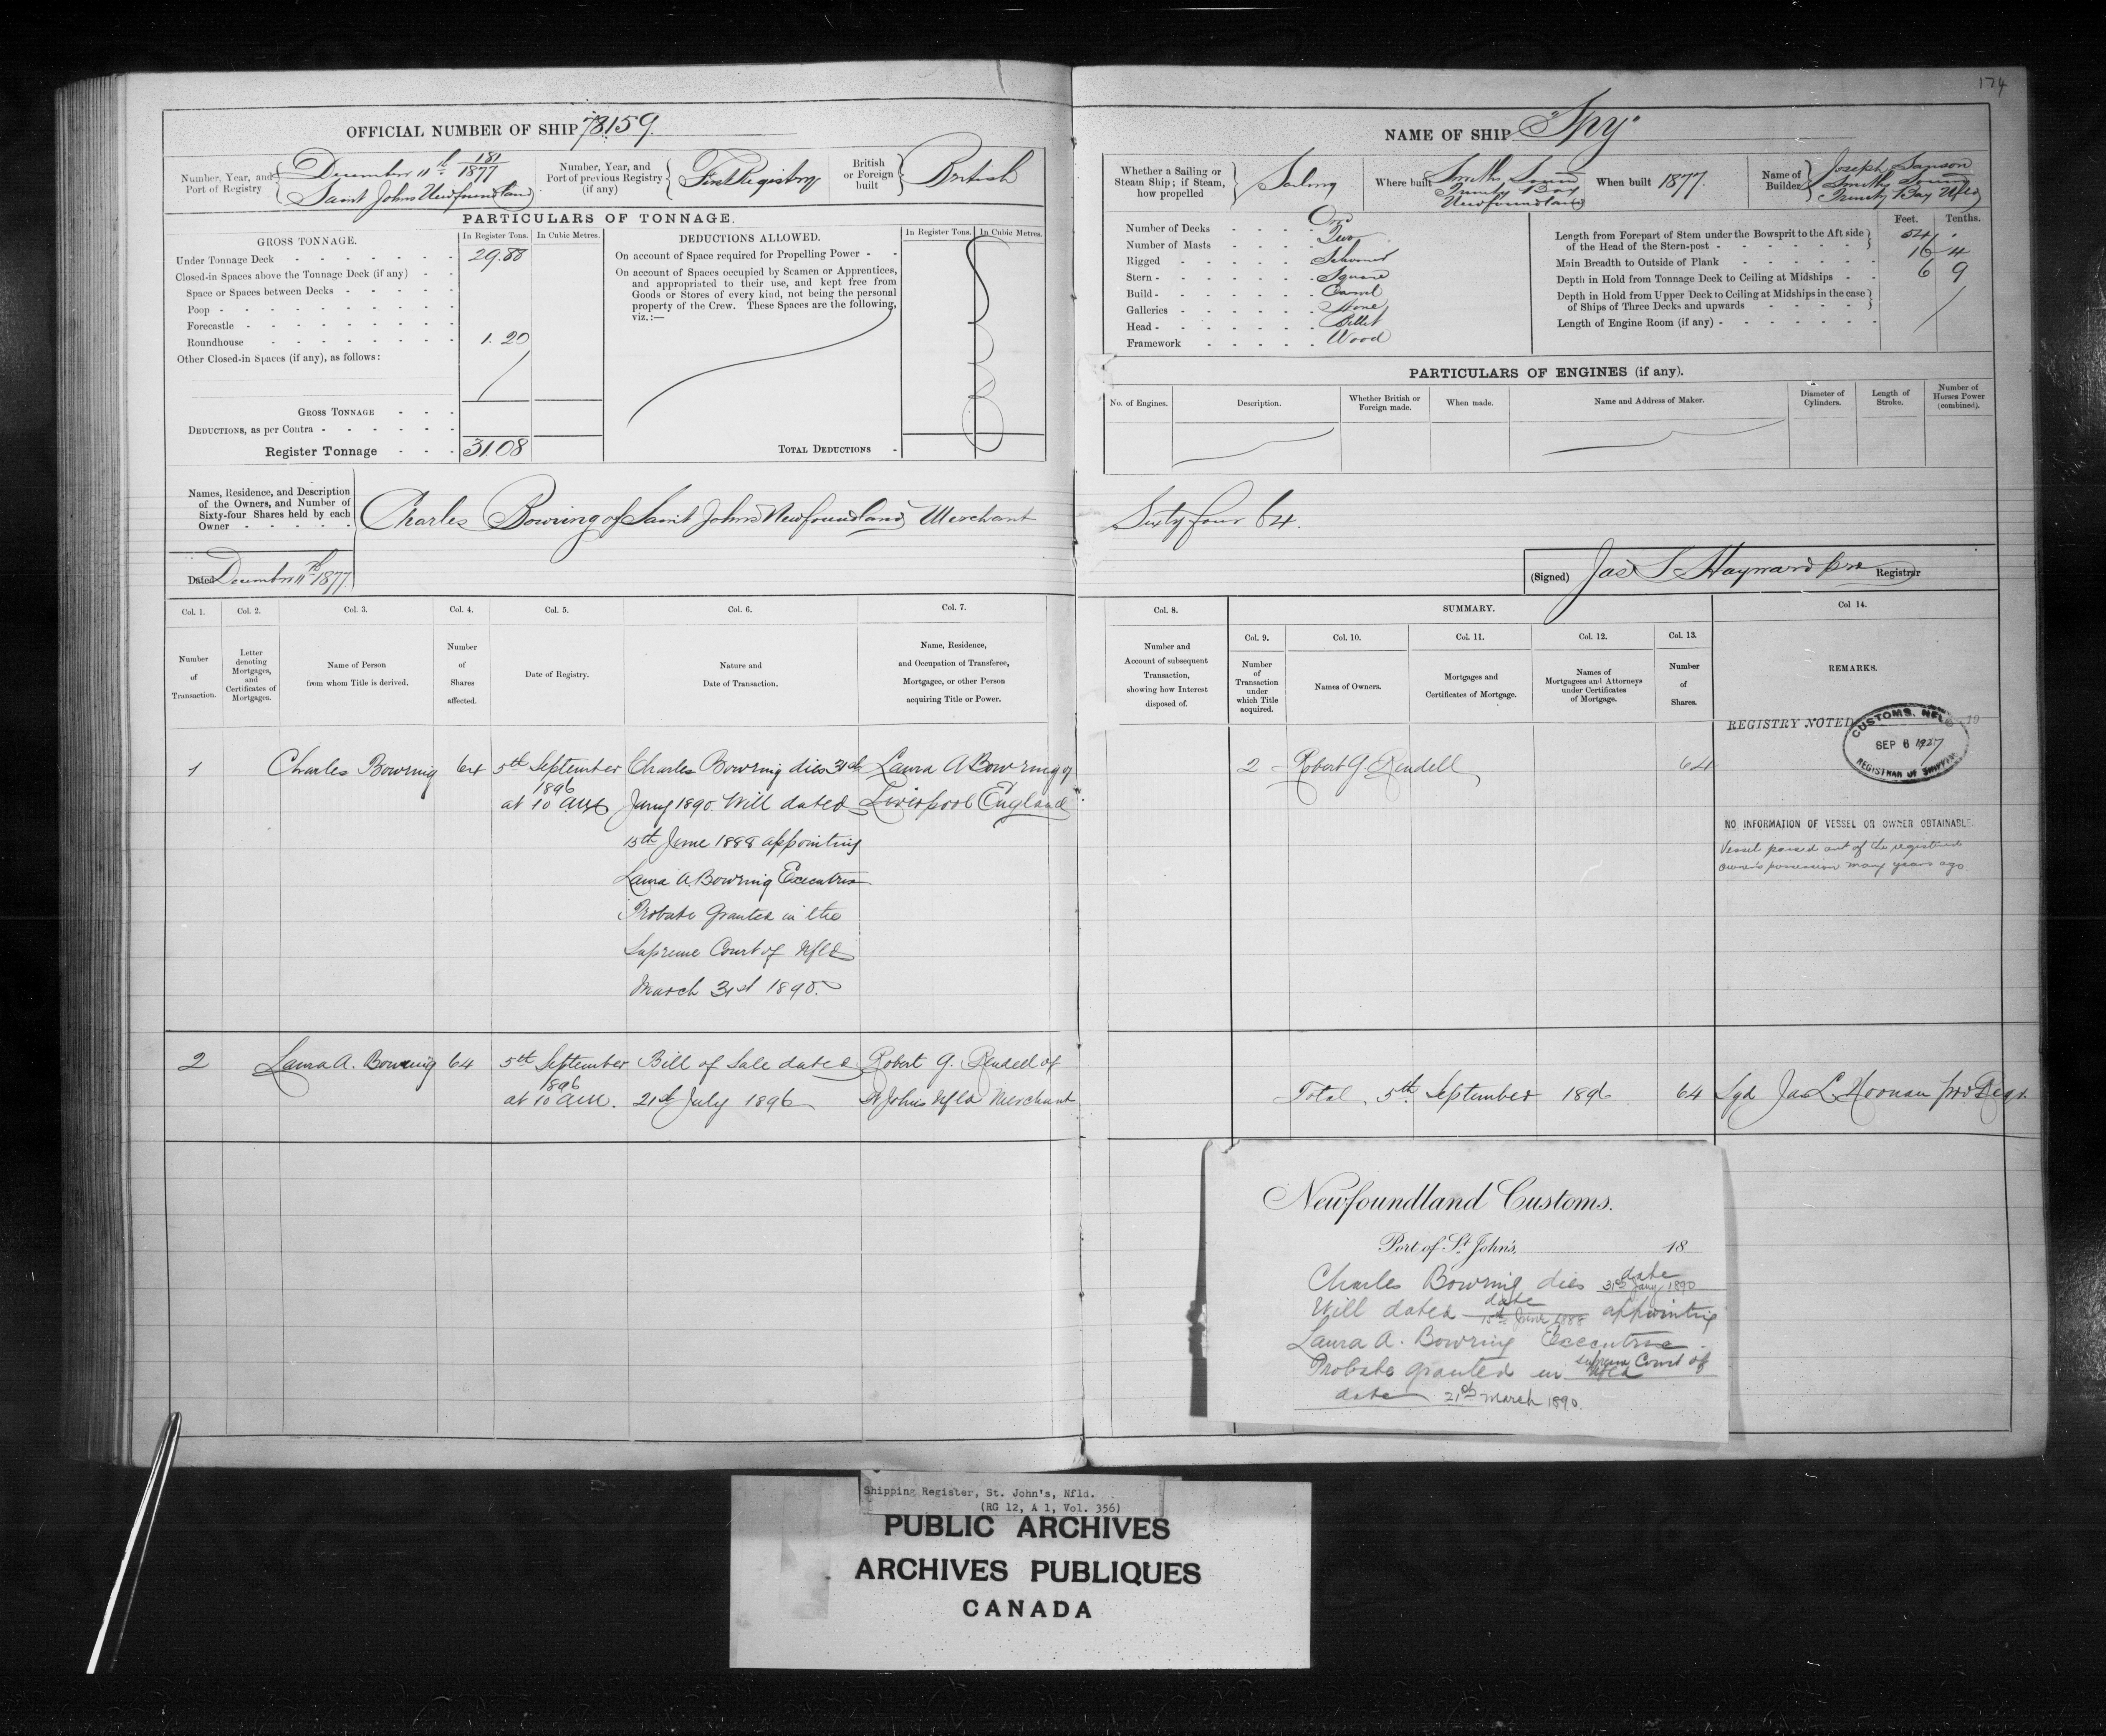 174
OFFICIAL NUMBER OF SHIP 78159
Number, Year, and Port of Registry
December 11th 181/1877
Saint Johns Newfoundland
Number, Year, and Port of previous Registry (if any)
First Registry
British or Foreign built
British
PARTICULARS OF TONNAGE.
GROSS TONNAGE.
In Register Tons.
In Cubic Metres.
Under Tonnage Deck 29.88
Closed-in Spaces above the Tonnage Deck (if any)
Space or Spaces between Decks
Poop
Forecastle
Roundhouse 1.20
Other Closed-in Spaces (if any), as follows:
GROSS TONNAGE
DEDUCTIONS, as per Contra
Register Tonnage 31.08
DEDUCTIONS ALLOWED.
In Register Tons.
In Cubic Metres.
On account of Space required for Propelling Power
On account of Spaces occupied by Seamen or Apprentices,
and appropriated to their use, and kept free from
Goods or Stores of every kind, not being the personal
property of the Crew. These Spaces are the following,
viz.:—
TOTAL DEDUCTIONS
NAME OF SHIP "Spy"
Whether a Sailing or Steam Ship; if Steam, how propelled
Sailing
Where built
Smiths Sound
Trinity Bay
Newfoundland
When built 1877.
Name of Builder
Joseph Janson
Smiths Sound
Trinity Bay Nfld
Number of Decks One
Number of Masts Two
Rigged Schooner
Stern Square
Build Carvel
Galleries None
Head Billet
Framework Wood
Feet. Tenths.
Length from Forepart of Stem under the Bowsprit to the Aft side
of the Head of the Stern-post 54 .
Main Breadth to Outside of Plank 16 4
Depth in Hold from Tonnage Deck to Ceiling at Midships 6 9
Depth in Hold from Upper Deck to Ceiling at Midships in the case
of Ships of Three Decks and upwards
Length of Engine Room (if any)
PARTICULARS OF ENGINES (if any).
No. of Engines.
Description.
Whether British or Foreign made.
When made.
Name and Address of Maker.
Diameter of Cylinders.
Length of Stroke.
Number of Horses Power (combined).
Names, Residence, and Description
of the Owners, and Number of
Sixty-four Shares held by each
Owner
Charles Bowring of Saint Johns Newfoundland Merchant Sixty four 64.
Dated December 11th 1877
(Signed) Jas S Hayward pro Registrar
Col. 1.
Number of Transaction.
Col. 2.
Letter denoting Mortgages, and Certificates of Mortgages.
Col. 3.
Name of Person from whom Title is derived.
Col. 4.
Number of Shares affected.
Col. 5.
Date of Registry.
Col. 6.
Nature and Date of Transaction.
Col. 7.
Name, Residence, and Occupation of Transferee, Mortgagee, or other Person acquiring Title or Power.
Col. 8.
Number and Account of subsequent Transaction, showing how Interest disposed of.
SUMMARY.
Col. 9.
Number of Transaction under which Title acquired.
Col. 10.
Names of Owners.
Col. 11.
Mortgages and Certificates of Mortgage.
Col. 12.
Names of Mortgagees and Attorneys under Certificates of Mortgage.
Col. 13.
Number of Shares.
Col 14.
REMARKS.
1
Charles Bowring
64
5th September
1896
at 10 am
Charles Bowring dies 31st
Jany 1890. Will dated
15th June 1888 appointing
Laura A. Bowring Executrix
Probate Granted in the
Supreme Court of Nfld
March 31st 1890.
Laura A Bowring of
Liverpool England
2
Robert G. Rendell
64
REGISTRY NOTED 19
CUSTOMS. NFLD
SEP 6 1927
REGISTRAR OF SHIPPING
NO INFORMATION OF VESSEL OR OWNER OBTAINABLE.
Vessel passed out of the registered
owner's possession many years ago.
2
Laura A. Bowring
64
5th September
1896
at 10 am.
Bill of Sale dated
21st July 1896
Robert G. Rendell of
St Johns Nfld Merchant
Total, 5th September 1896 64
Sgd Jas L Noonan pro Regr.
Newfoundland Customs.
Port of St John's, 18
Charles Bowring dies date 31st Jany 1890
Will dated date 15th June 1888 appointing
Laura A. Bowring Executrix.
Probate granted in Supreme Court of Nfld
date 21st March 1890.
Shipping Register, St. John's, Nfld.
(RG 12, A 1, Vol. 356)
PUBLIC ARCHIVES
ARCHIVES PUBLIQUES
CANADA